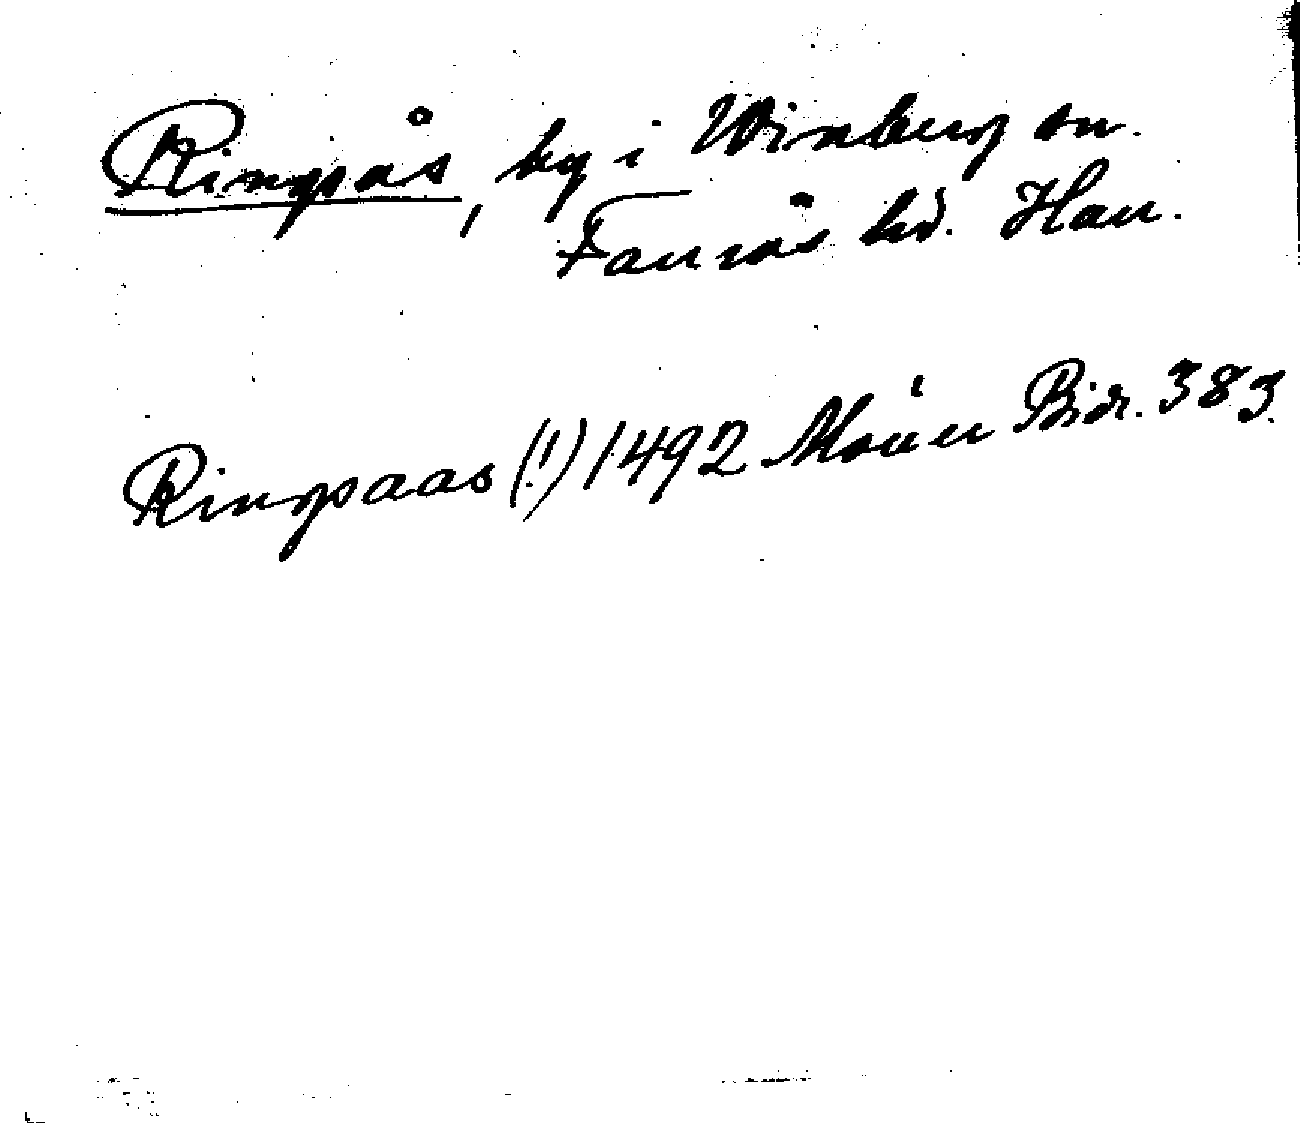 Ringsås, by i Winberg sn.
Faurås hd. Hall.
Ringsaas (!) 1492 Houén Bidr. 383.